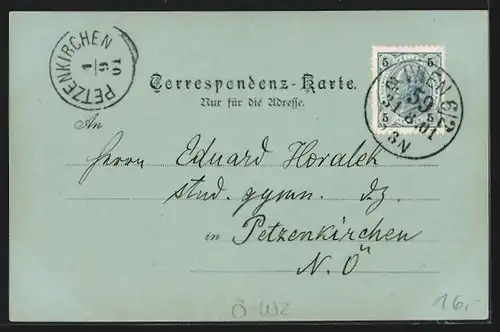 PETZENKIRCHEN
1
9
01
5 5
WIEN 9/3
59
31.8.01
3N
5 5
Correspondenz-Karte.
Nur für die Adresse.
An
Herrn Eduard Horalek
stud. gymn. dz.
in Petzenkirchen
N. Ö
Ö-WZ
16,-